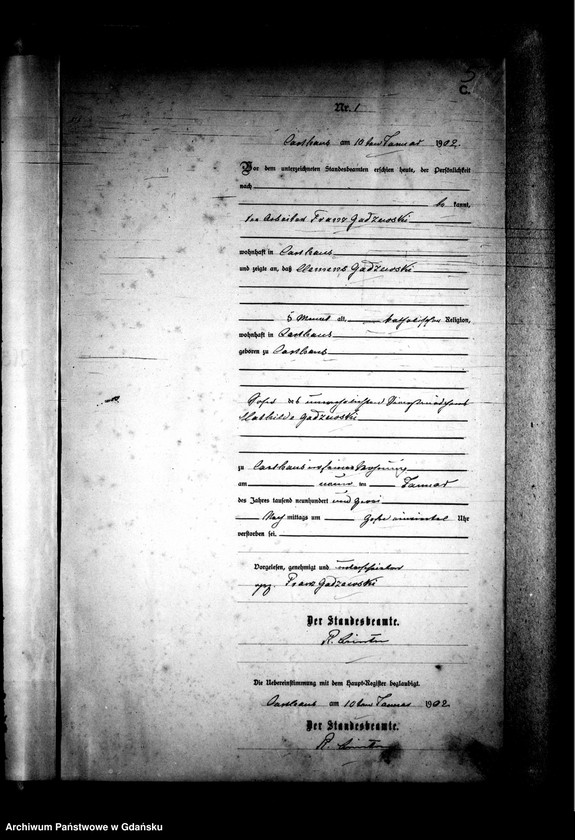 C.
Nr. 1
Carthaus am 10ten Januar 1902.
Vor dem unterzeichneten Standesbeamten erschien heute, der Persönlichkeit
nach
be kannt,
der Arbeiter Franz Gadzewski
wohnhaft in Carthaus
und zeigte an, daß Clemens Gadzewski
5 Monat alt, katholischer Religion,
wohnhaft in Carthaus
geboren zu Carthaus
Sohn des unverehelichten Dienstmädchens
Mathilde Gadzewski
zu Carthaus in seiner Wohnung
am neun ten Januar
des Jahres tausend neunhundert und zwei
Nach mittags um Uhr
verstorben sei.
Vorgelesen, genehmigt und unterschrieben
gez. Franz Gadzewski
Der Standesbeamte.
R.
Die Uebereinstimmung mit dem Haupt-Register beglaubigt.
Carthaus am 10ten Januar 1902.
Der Standesbeamte.
R.
Archiwum Państwowe w Gdańsku